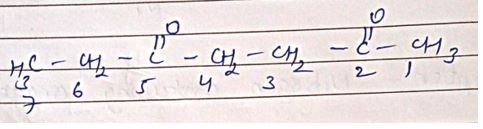 O O
H3C - CH2 - C - CH2 - CH2 - C - CH3
7 6 5 4 3 2 1